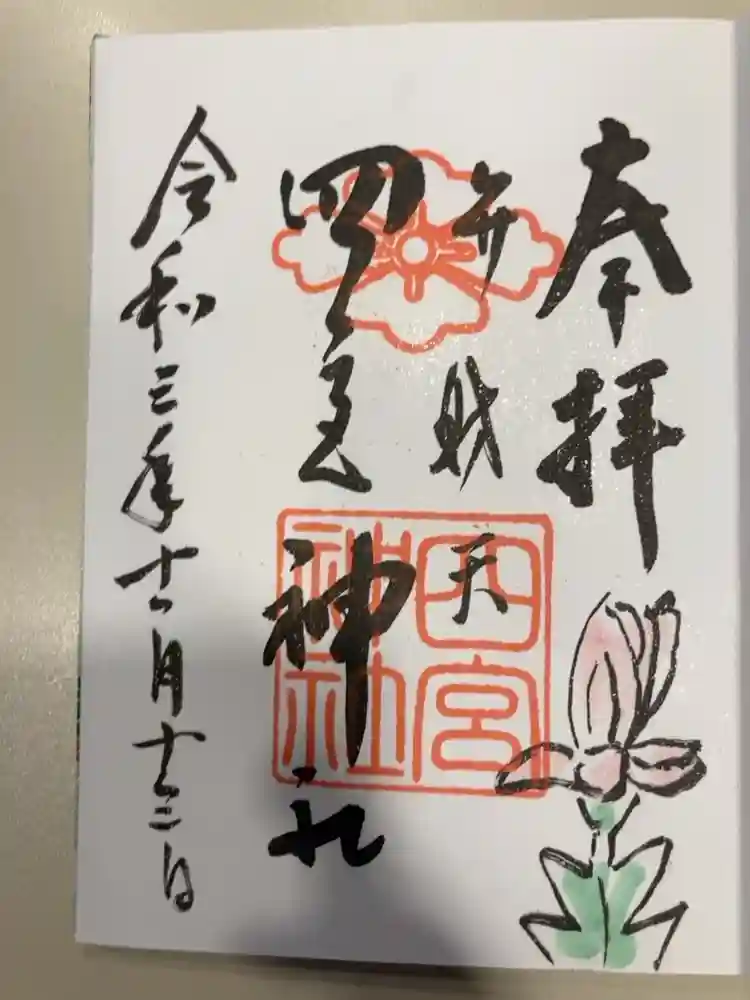 奉拝
弁財天
四宮神社
令和三年十一月十三日
四宮
神社